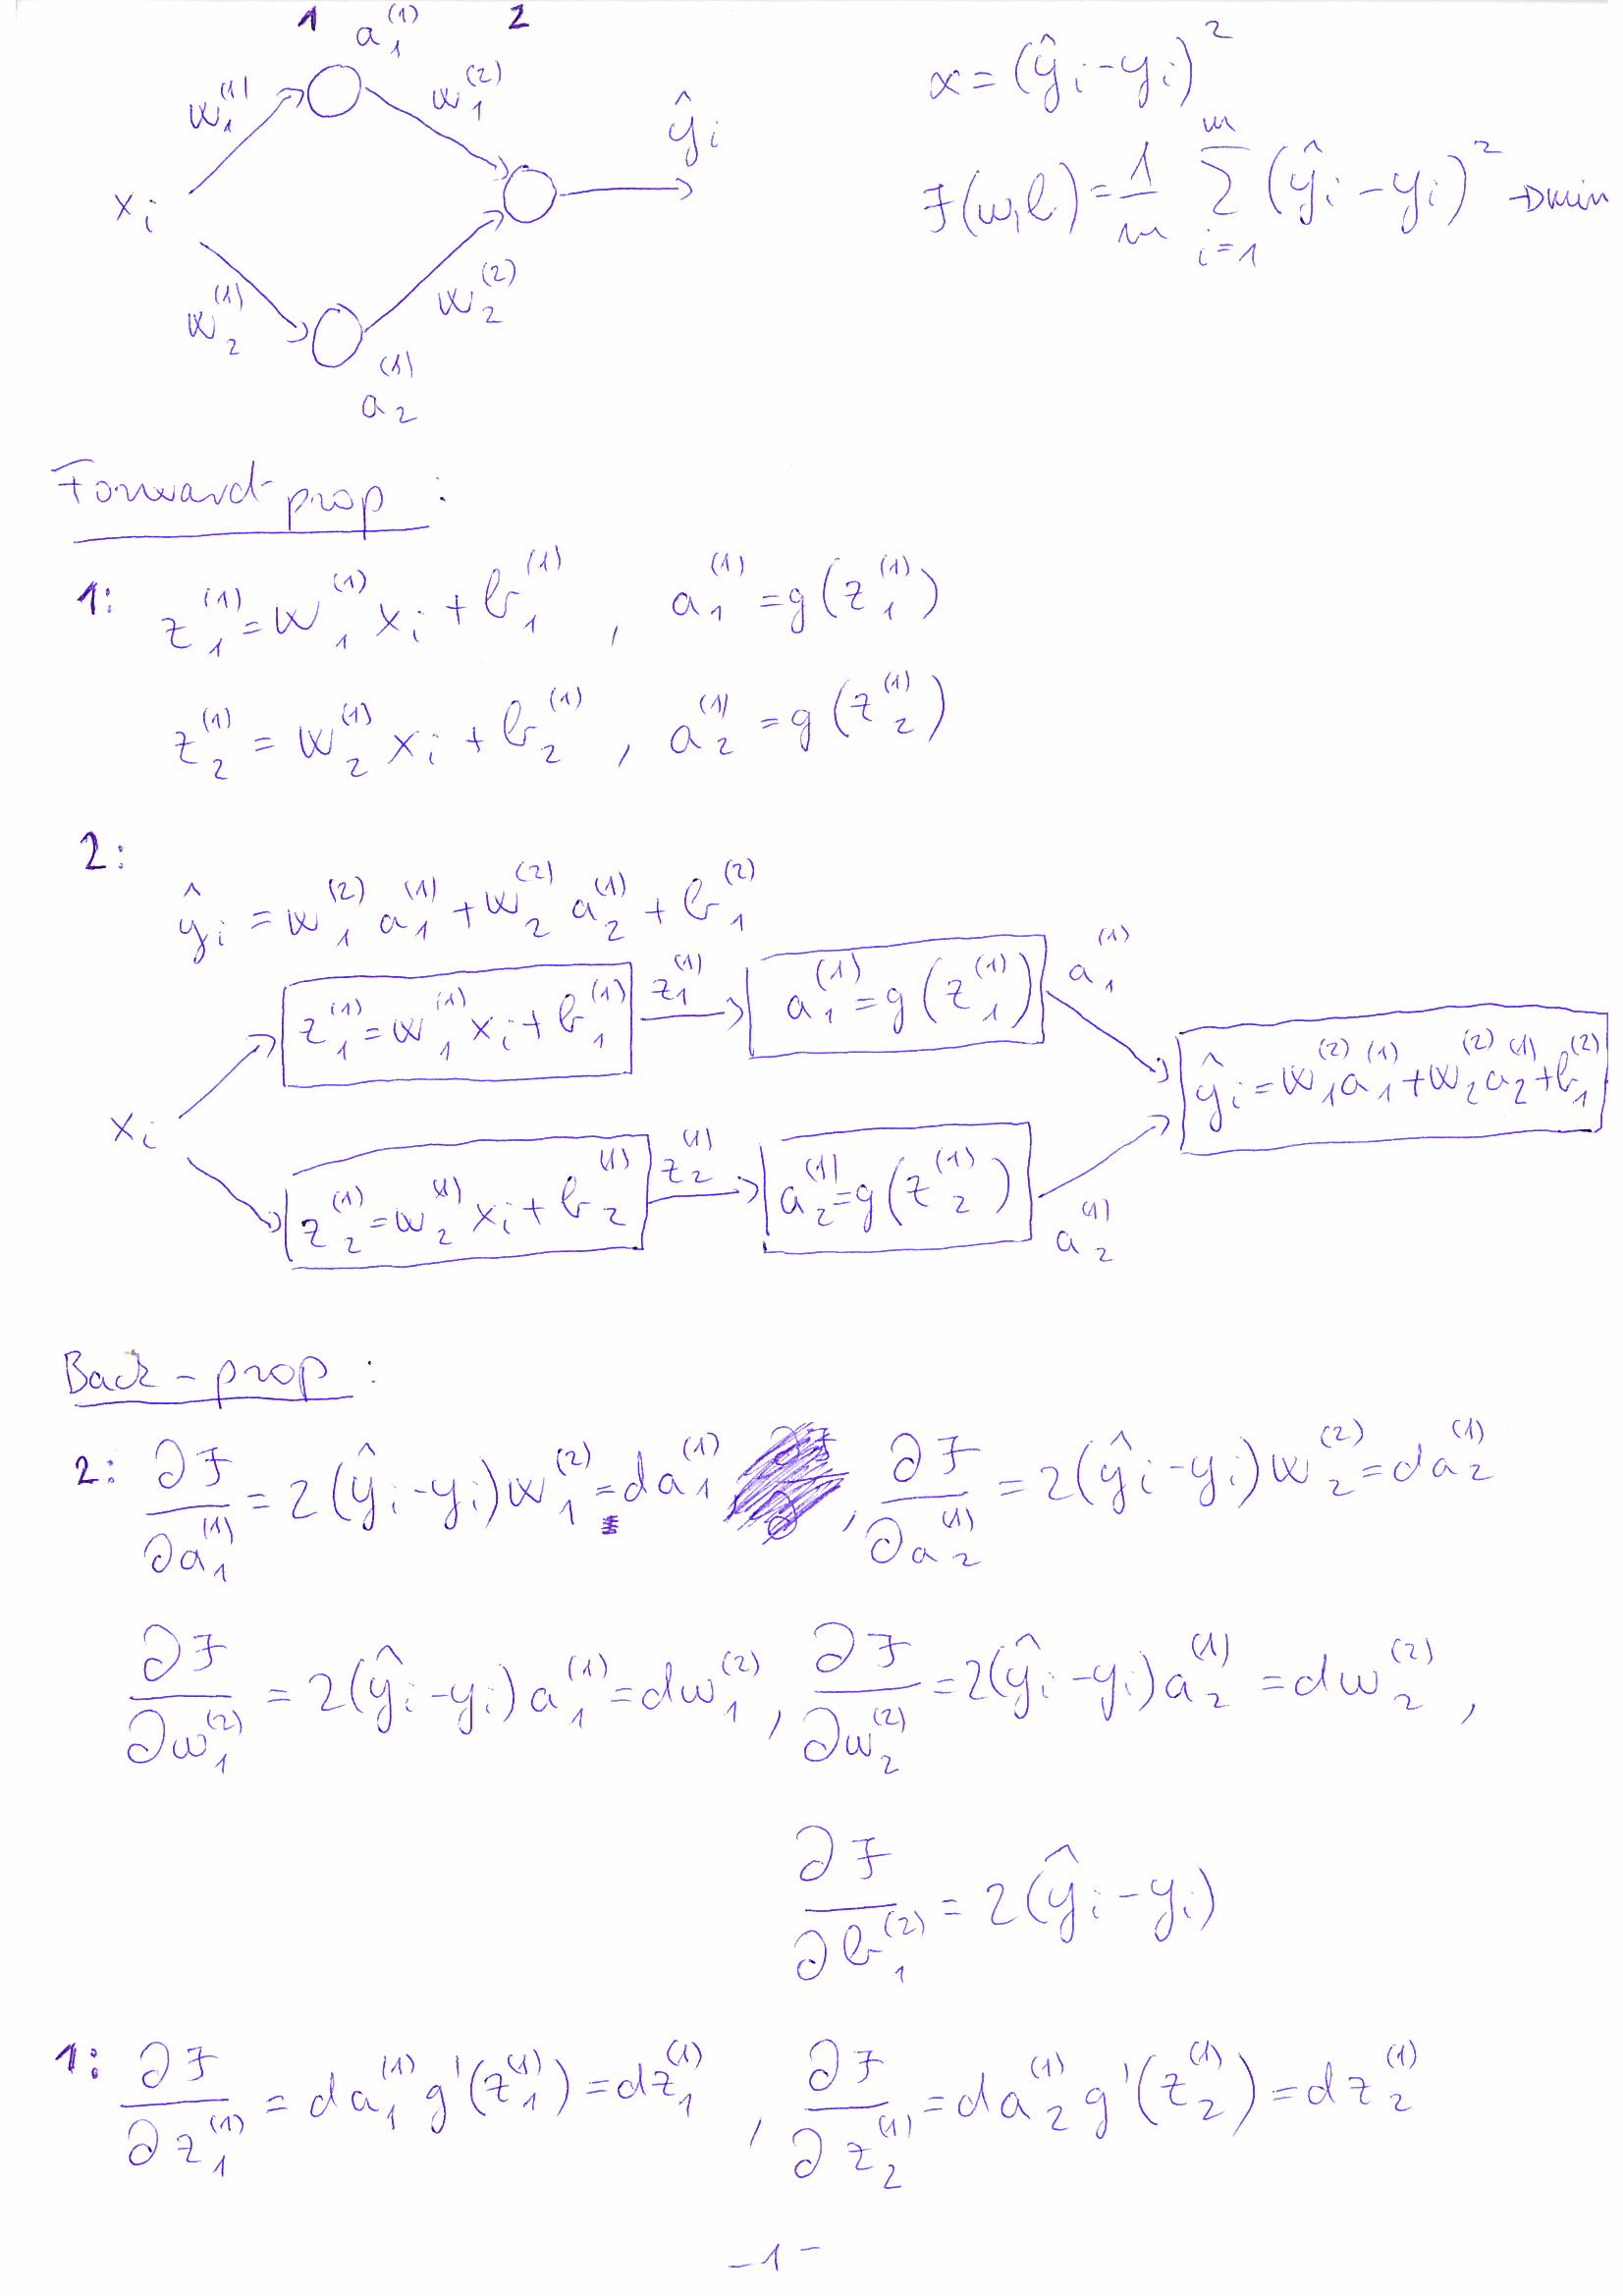 1 a₁⁽¹⁾ 2
w₁⁽¹⁾ w₁⁽²⁾ ŷᵢ
xᵢ
w₂⁽¹⁾ w₂⁽²⁾
a₂⁽¹⁾
α = (ŷᵢ - yᵢ)²
J(w,b) = 1/m Σᵢ₌₁ᵐ (ŷᵢ - yᵢ)² → min
Forward-prop :
1: z₁⁽¹⁾ = w₁⁽¹⁾ xᵢ + b₁⁽¹⁾ , a₁⁽¹⁾ = g(z₁⁽¹⁾)
z₂⁽¹⁾ = w₂⁽¹⁾ xᵢ + b₂⁽¹⁾ , a₂⁽¹⁾ = g(z₂⁽¹⁾)
2:
ŷᵢ = w₁⁽²⁾ a₁⁽¹⁾ + w₂⁽²⁾ a₂⁽¹⁾ + b₁⁽²⁾
z₁⁽¹⁾ = w₁⁽¹⁾ xᵢ + b₁⁽¹⁾ z₁⁽¹⁾ a₁⁽¹⁾ = g(z₁⁽¹⁾) a₁⁽¹⁾
xᵢ ŷᵢ = w₁⁽²⁾ a₁⁽¹⁾ + w₂⁽²⁾ a₂⁽¹⁾ + b₁⁽²⁾
z₂⁽¹⁾ = w₂⁽¹⁾ xᵢ + b₂⁽¹⁾ z₂⁽¹⁾ a₂⁽¹⁾ = g(z₂⁽¹⁾) a₂⁽¹⁾
Back-prop :
2: ∂J/∂a₁⁽¹⁾ = 2(ŷᵢ - yᵢ) w₁⁽²⁾ = da₁⁽¹⁾ , ∂J/∂a₂⁽¹⁾ = 2(ŷᵢ - yᵢ) w₂⁽²⁾ = da₂⁽¹⁾
∂J/∂w₁⁽²⁾ = 2(ŷᵢ - yᵢ) a₁⁽¹⁾ = dw₁⁽²⁾ , ∂J/∂w₂⁽²⁾ = 2(ŷᵢ - yᵢ) a₂⁽¹⁾ = dw₂⁽²⁾ ,
∂J/∂b₁⁽²⁾ = 2(ŷᵢ - yᵢ)
1: ∂J/∂z₁⁽¹⁾ = da₁⁽¹⁾ g'(z₁⁽¹⁾) = dz₁⁽¹⁾ , ∂J/∂z₂⁽¹⁾ = da₂⁽¹⁾ g'(z₂⁽¹⁾) = dz₂⁽¹⁾
- 1 -